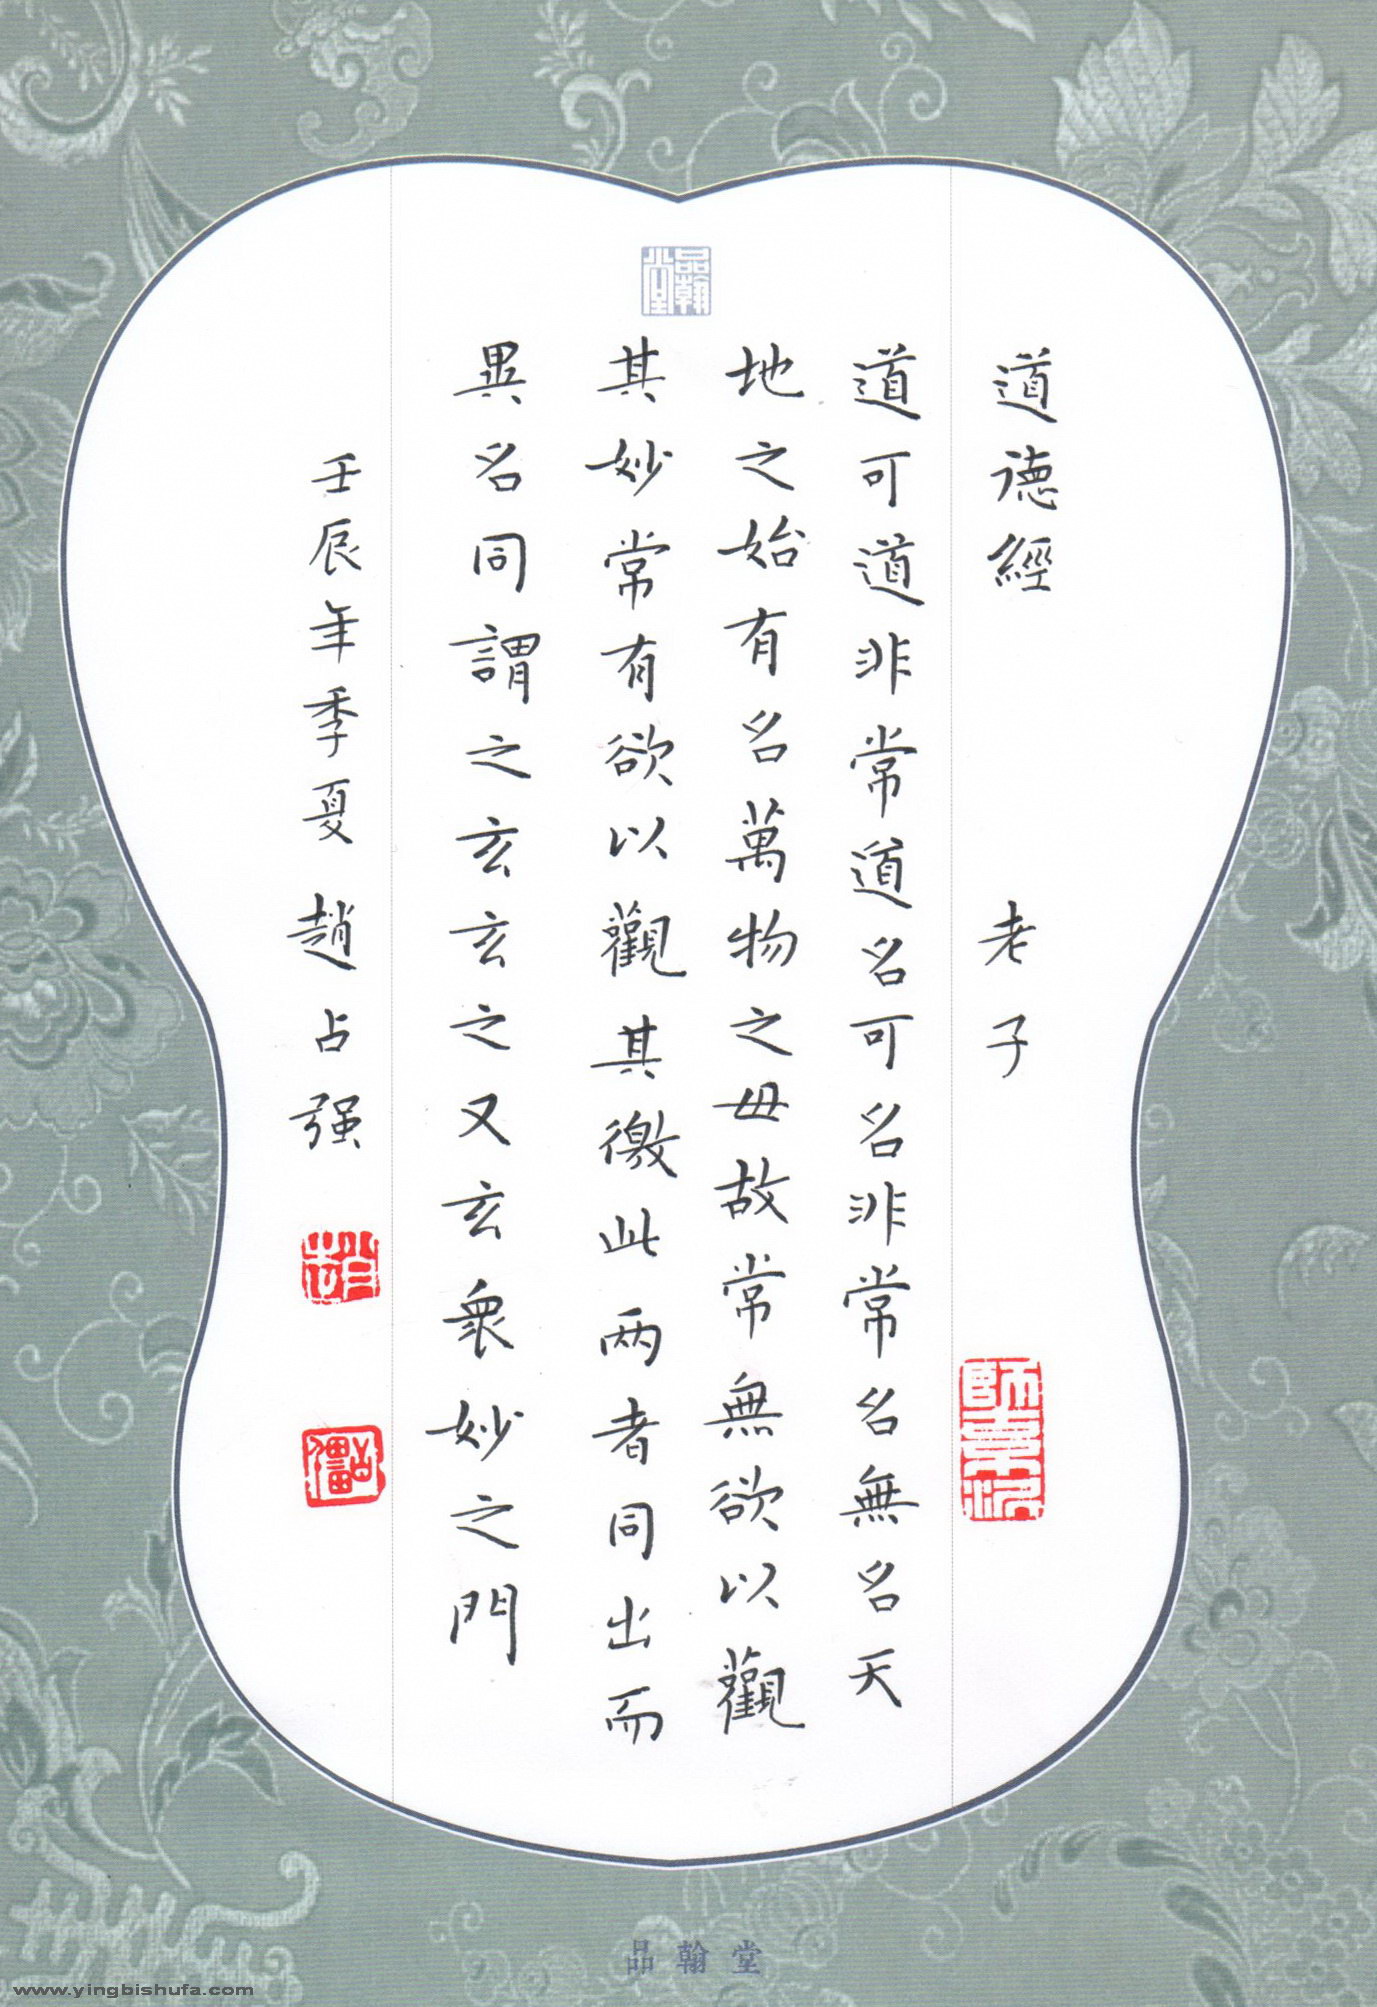 品翰堂
道德經 老子
道可道非常道名可名非常名無名天
地之始有名萬物之母故常無欲以觀
其妙常有欲以觀其徼此两者同出而
異名同謂之玄玄之又玄衆妙之門
壬辰年季夏 趙占强
品翰堂
www.yingbishufa.com